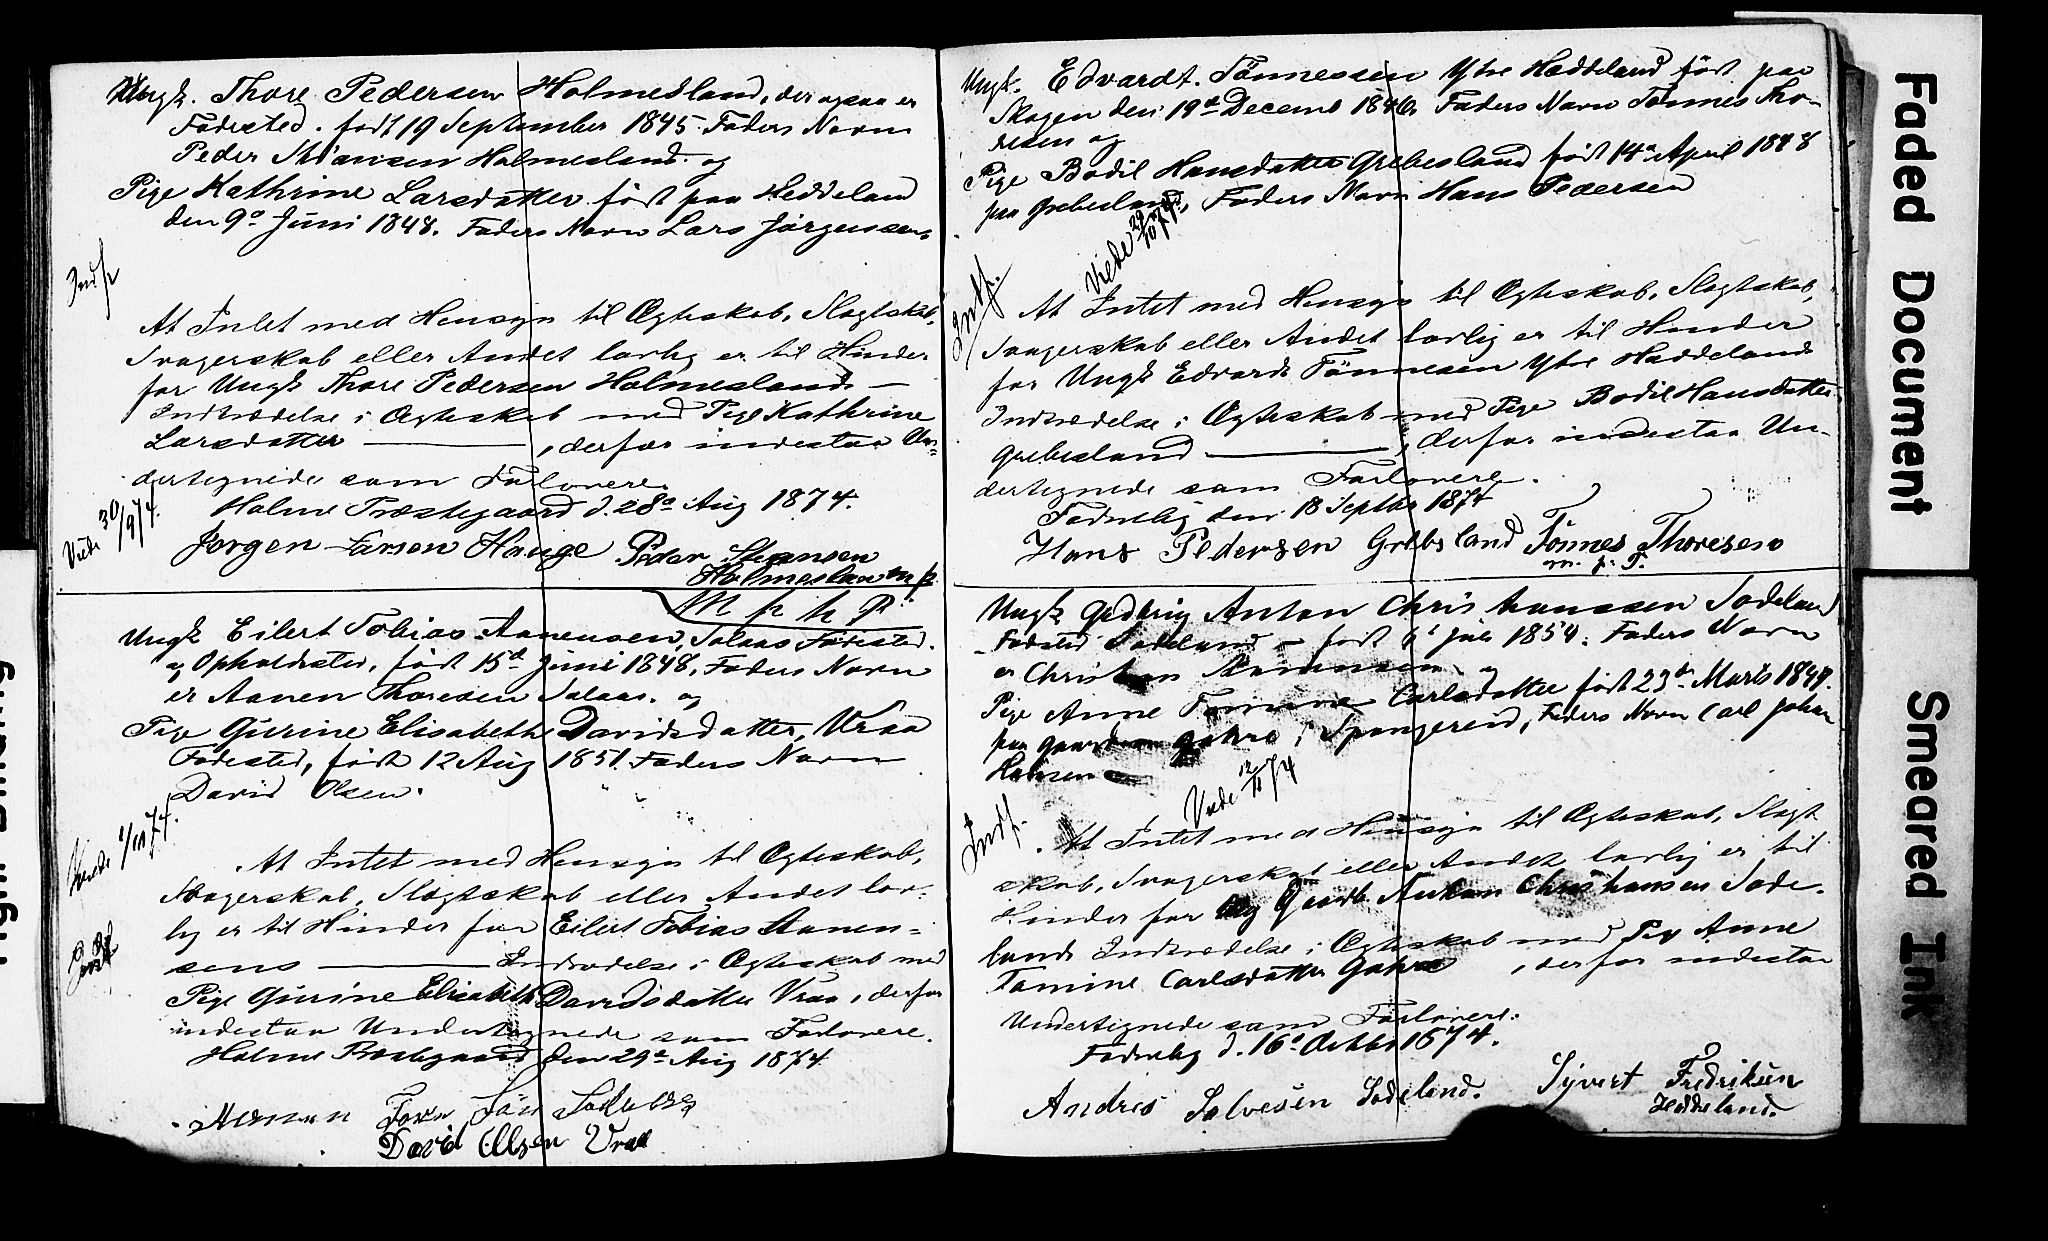 Ungk. Thore Pedersen Holmesland, der ogsaa er
Fødested. født 19 September 1845. Faders Navn
Peder Holmesland. og
Pige Kathrine Larsdatter født paa Heddeland
den 9de Juni 1848. Faders Navn Lars Jørgensen.
Indf
At Intet med Hensyn til Ægteskab, Slægtskab,
Svogerskab eller Andet lovlig er til Hinder
for Ungk Thore Pedersen Holmeslands —
Indtrædelse i Ægteskab med Pige Kathrine
Larsdatter ———, derfor indestaa Un=
dertegnede som Forlovere.
Holme Præstegaard d. 28de Aug 1874.
Viede 30/9 74.
Jørgen Larsen Hauge Peder
Holmesland
M p h P.
Ungk Eilert Tobias Aanensen, Salaas Fødested
og Opholdssted, født 15de Juni 1848, Faders Navn
er Aanen Thoresen Salaas. og
Pige Gurine Elisabeth Davidsdatter, Vraa
Fødested, født 12 Aug 1851. Faders Navn
David Olsen.
Viede 1/10 74.
At Intet med Hensyn til Ægteskab,
Svogerskab, Slægtskab eller Andet lov-
lig er til Hinder for Eilert Tobias Aanen=
sens ——— Indtrædelse i Ægteskab med
Pige Gurine Elisabeth Davidsdatter Vraa, derfor
indestaa Undertegnede som Forlovere.
Holme Præstegaard den 29de Aug 1874.
David Olsen Vraa
Ungk. Edvardt. Tønnessen Ytre Heddeland født paa
Skogen den 19de Decemb 1846. Faders Navn Tønnes Tho-
resen og
Pige Bodil Hansdatter Grebesland født 14de April 1848
paa Grebesland, Faders Navn Hans Pedersen
Viede 29/10 74.
Indf.
At Intet med Hensyn til Ægteskab, Slægtskab,
Svogerskab eller Andet lovlig er til Hinder
for Ungk Edvardt Tønnesen Ytre Heddelands
Indtrædelse i Ægteskab med Pige Bodil Hansdatter
Grebesland ———, derfor indestaa Un-
dertegnede som Forlovere.
den 18 Septbr 1874
Hans Pedersen Grebsland Tønnes Thoresen
m. p. P.
Ungk Anton Christianssen Sodeland
Fødested Sodeland — født 1854. Faders Navn
er Christian og
Pige Anne Tomine Carlsdatter født 23de Marts 1849.
paa Gaarden i Spangereid, Faders Navn Carl Johan
Hansen
Viede 12/10 74
Indf.
At Intet med Hensyn til Ægteskab, Slægt
skab, Svogerskab eller Andet lovlig er til
Hinder for Ung Anton Christiansen Sode-
lands Indtrædelse i Ægteskab med Pige Anne
Tomine Carlsdatter, derfor indestaa
Undertegnede som Forlovere.
d. 16de Octbr 1874.
Andres Salvesen Sodeland. Syvert Fredriksen
Heddeland.
Faded Document
Smeared Ink